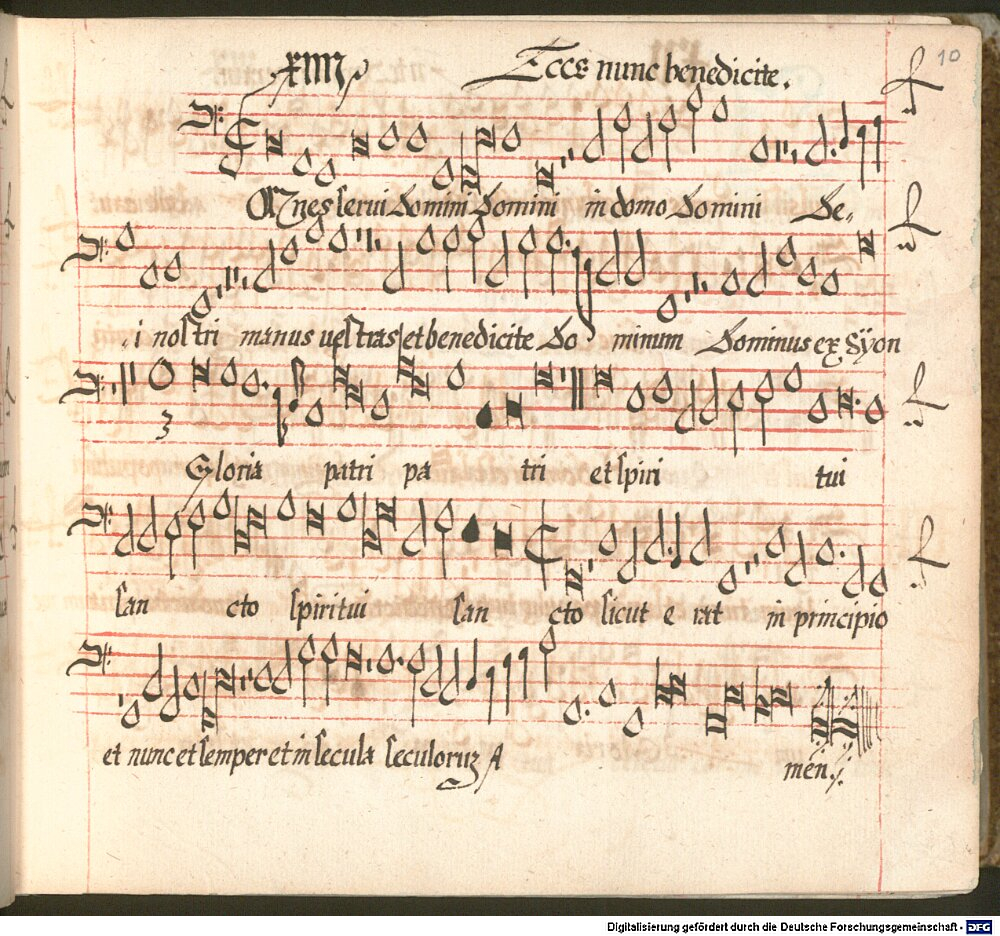 10
xiiii Ecce nunc benedicite.
Omnes serui Domini Domini in domo Domini De-
i nostri manus vestras et benedicite Do minum Dominus ex Syon
3
Gloria patri pa tri et spiri tui
san cto spiritui san cto sicut e rat in principio
et nunc et semper et in secula seculorum A men
Digitalisierung gefördert durch die Deutsche Forschungsgemeinschaft - DFG